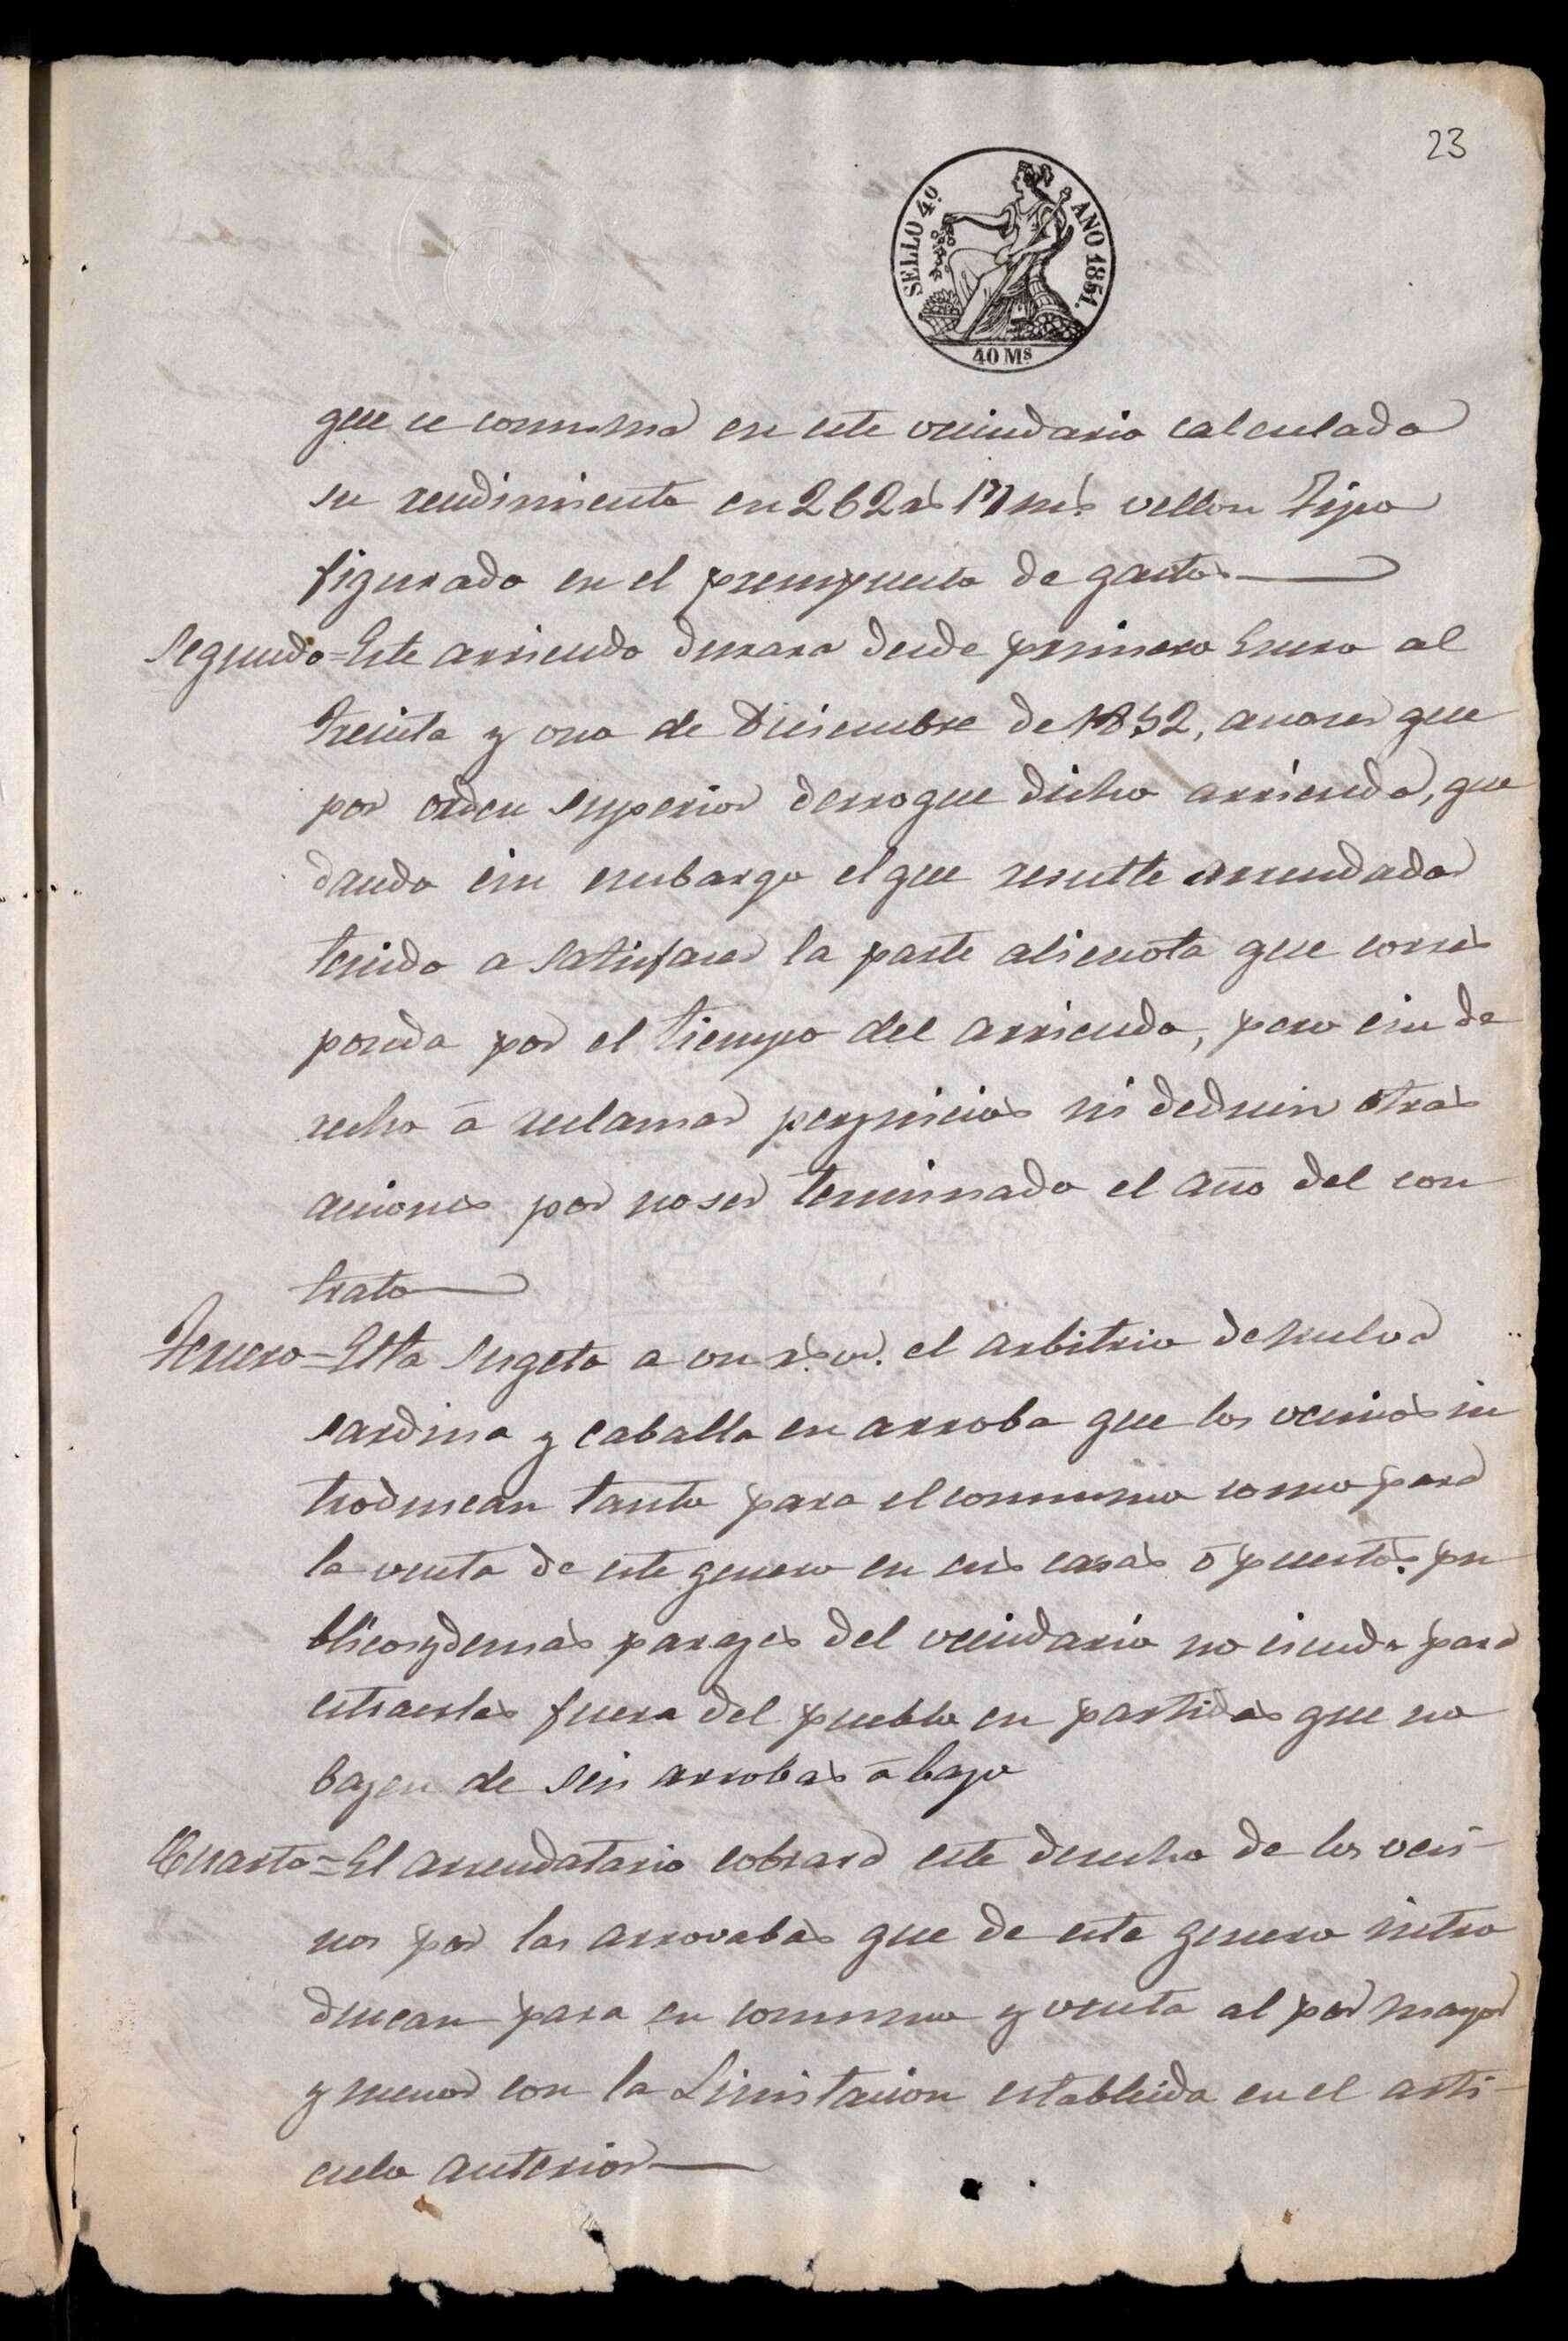 23
SELLO 4º. AÑO 1851.
40 Ms
que ce consuma en este vecindario calculado
su rendimiento en 262 rs 17 mrs vellon tipo
figurado en el presupuesto de gastos
Segundo = Este arriendo durara desde primero Enero al
treinta y ono de Diciembre de 1852, anoser que
por orden superior derrogue dicho arriendo, que
dando cin embargo el que resulte arrendador
tenido a satisfacer la parte alicuota que corres
ponda por el tiempo del arriendo, pero cin de
recho á reclamar perjuicios ni deducir otras
aciones por no ser terminado el año del con
trato
Tercero = Esta sugeto a on rs. vn. el arbitrio de
sardina y caballa en arroba que los vecinos in
troduscan tanto para el consumo como para
la venta de este genero en cus casas ó puestos pu
blicos y demas parages del vecindario no ciendo para
estraerlas fuera del pueblo en partidas que no
bagen de seis arrobas á bajo
Cuarto = El arrendatario cobrara este derecho de los veci-
nos por las arrovabas que de este genero intro
duscan para cu consumo y venta al por mayor
y menor con la Limitacion establecida en el arti-
culo anterior